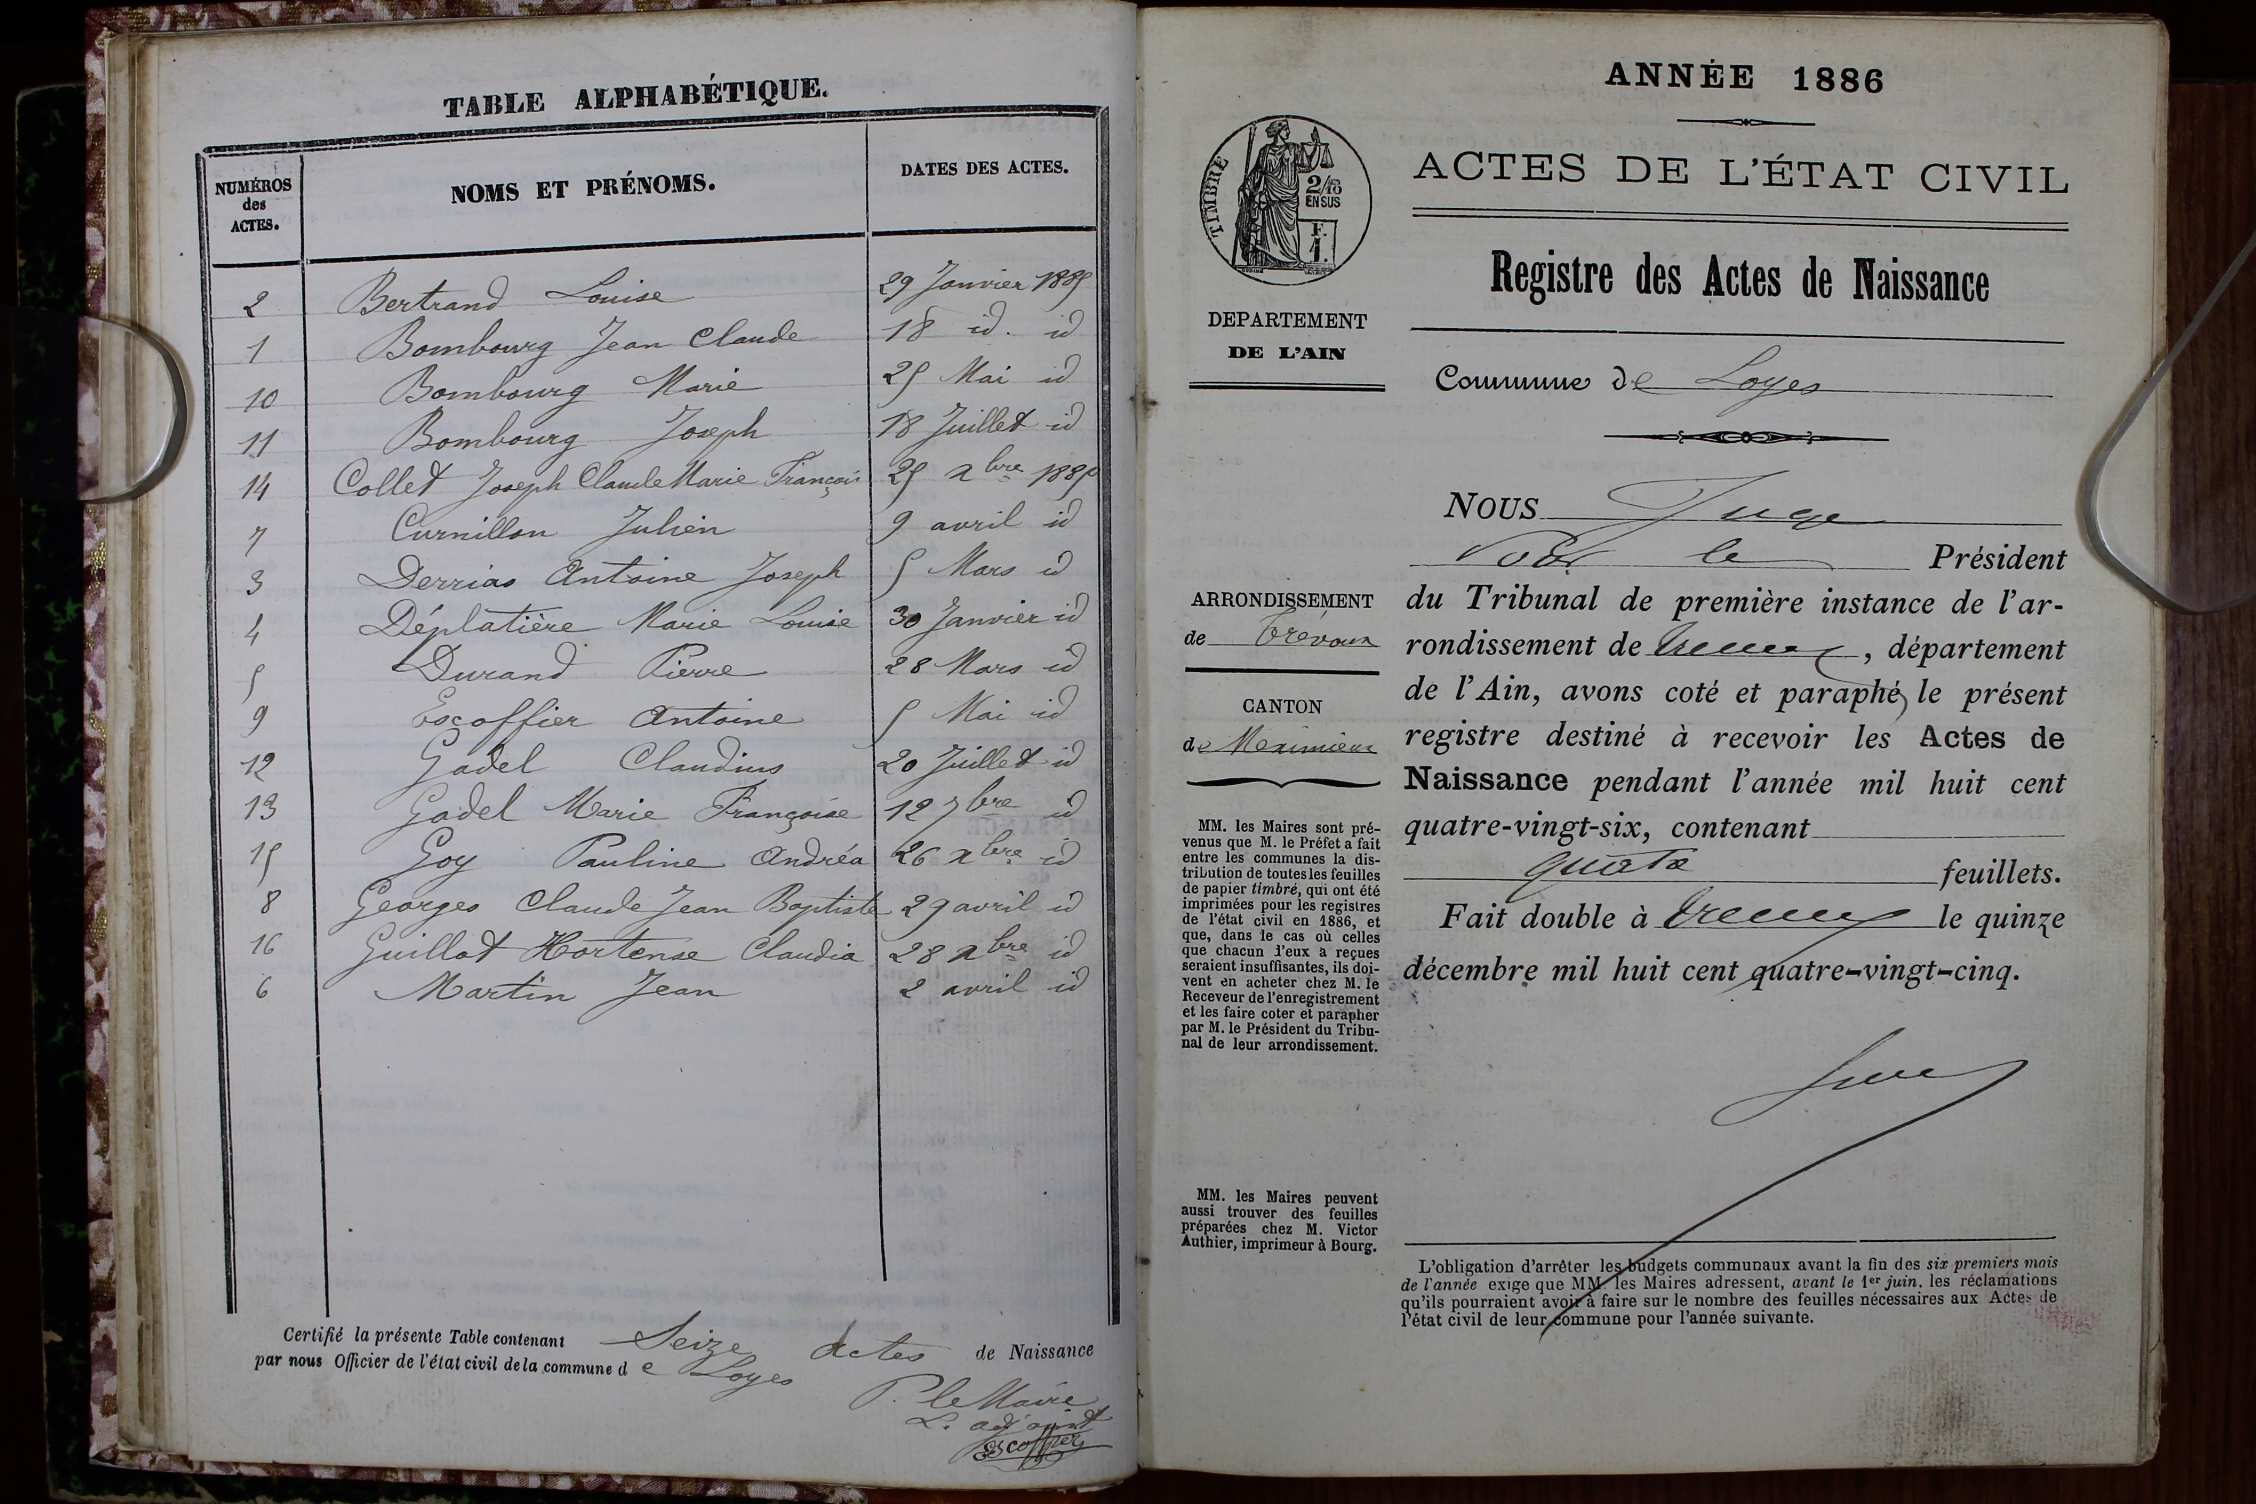 TABLE ALPHABÉTIQUE.
NUMÉROS des ACTES.
NOMS ET PRÉNOMS.
DATES DES ACTES.
2 Bertrand Louise 29 Janvier 1885
1 Bombourg Jean Claude 18 id. id
10 Bombourg Marie 25 Mai id
11 Bombourg Joseph 18 Juillet id
14 Collet Joseph Claude Marie François 25 xbre 1885
7 Curnillon Julien 9 avril id
3 Derrias Antoine Joseph 5 Mars id
4 Déplatière Marie Louise 30 Janvier id
5 Durand Pierre 28 Mars id
9 Escoffier Antoine 5 Mai id
12 Gadel Claudius 20 Juillet id
13 Gadel Marie Françoise 12 7bre id
15 Goy Pauline Andréa 26 xbre id
8 Georges Claude Jean Baptiste 29 avril id
16 Guillot Hortense Claudia 28 xbre id
6 Martin Jean 2 avril id
Certifié la présente Table contenant Seize actes de Naissance
par nous Officier de l'état civil de la commune de Loyes
P. le Maire
L. adjoint
Escoffier
ANNÉE 1886
TIMBRE
2/10
EN SUS
F.
1.
ACTES DE L'ÉTAT CIVIL
Registre des Actes de Naissance
DEPARTEMENT
DE L'AIN
Commune de Loyes
NOUS Juge
Pour le Président
du Tribunal de première instance de l'ar-
rondissement de Trévoux, département
de l'Ain, avons coté et paraphé le présent
registre destiné à recevoir les Actes de
Naissance pendant l'année mil huit cent
quatre-vingt-six, contenant
quatre feuillets.
Fait double à Trévoux le quinze
décembre mil huit cent quatre-vingt-cinq.
ARRONDISSEMENT
de Trévoux
CANTON
de Meximieux
MM. les Maires sont pré-
venus que M. le Préfet a fait
entre les communes la dis-
tribution de toutes les feuilles
de papier timbré, qui ont été
imprimées pour les registres
de l'état civil en 1886, et
que, dans le cas où celles
que chacun d'eux a reçues
seraient insuffisantes, ils doi-
vent en acheter chez M. le
Receveur de l'enregistrement
et les faire coter et parapher
par M. le Président du Tribu-
nal de leur arrondissement.
MM. les Maires peuvent
aussi trouver des feuilles
préparées chez M. Victor
Authier, imprimeur à Bourg.
L'obligation d'arrêter les budgets communaux avant la fin des six premiers mois
de l'année exige que MM. les Maires adressent, avant le 1er juin, les réclamations
qu'ils pourraient avoir à faire sur le nombre des feuilles nécessaires aux Actes de
l'état civil de leur commune pour l'année suivante.